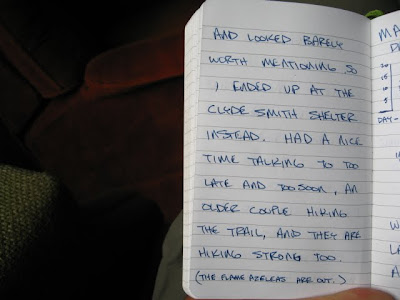 AND LOOKED BARELY
WORTH MENTIONING SO
I ENDED UP AT THE
CLYDE SMITH SHELTER
INSTEAD. HAD A NICE
TIME TALKING TO TOO
LATE AND TOO SOON, AN
OLDER COUPLE HIKING
THE TRAIL, AND THEY ARE
HIKING STRONG TOO.
(THE FLAME AZELEAS ARE OUT.)
MA
20
15
10
5
DAY-
W
LA
A